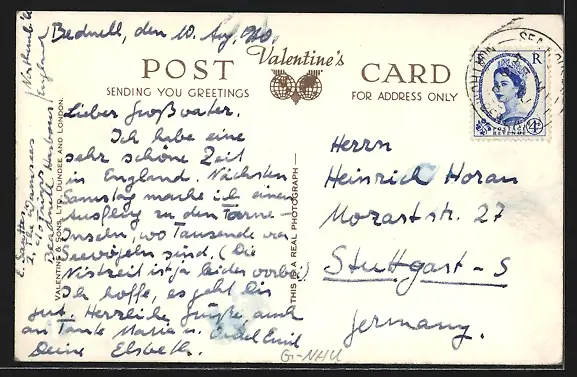 Bednell, den 10. Aug. 1960.
Valentine's
POST CARD
SENDING YOU GREETINGS
FOR ADDRESS ONLY
Lieber Großvater.
Ich habe eine
sehr schöne Zeit
in England. Nächsten
Samstag mache ich einen
Ausflug zu den Farne-
Inseln, wo Tausende von
Seevögeln sind. (Die
Nistzeit ist ja leider vorbei)
Ich hoffe, es geht Dir
gut. Herzliche Grüße auch
an Tante Maria u. Onkel Emil
Deine Elsbeth.
Herrn
Heinrich Horan
Mozartstr. 27
Stuttgart-S
Germany.
THIS IS A REAL PHOTOGRAPH
VALENTINE & SONS, LTD. DUNDEE AND LONDON.
c/o
Beadnell Harbour
England
E R
POSTAGE
4D
G-NHU